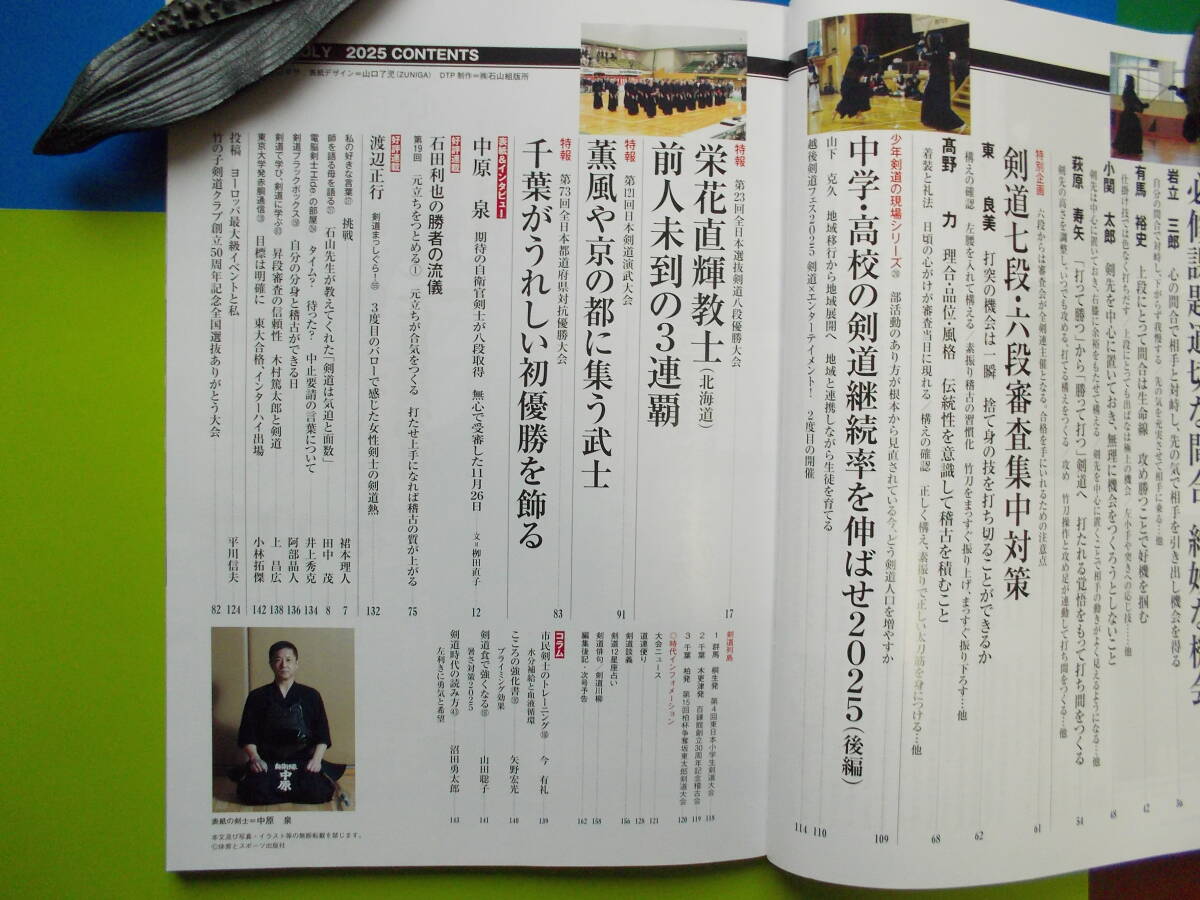 JULY 2025 CONTENTS
表紙デザイン＝山口了児（ZUNIGA） DTP 制作＝㈱石山組版所
岩立 三郎 心の間合で相手と対峙し、先の気で相手を引き出し機会を得る
自分の間合で対峙し、下がらず我慢する 先の気を充実させて相手に乗る…他
36
有馬 裕史 上段にとって間合は生命線 攻め勝つことで好機を掴む
仕掛け技では色なく打ちだす 上段にとっても出ばなは極上の機会 左小手や突きへの応じ技……他
42
小関 太郎 剣先を中心に置いておき、無理に機会をつくろうとしないこと
剣先は中心に置いておき、右膝に余裕をもたせて構える 剣先を中心に置くことで相手の動きがよく見えるようになる…他
48
萩原 寿矢 「打って勝つ」から「勝って打つ」剣道へ 打たれる覚悟をもって打ち間をつくる
剣先の高さを調整し、いつでも攻める、打てる構えをつくる／攻め 竹刀操作と攻め足が連動して打ち間をつくる…他
54
特別企画 六段からは審査会が全剣連主催となる、合格を手にいれるための注意点
剣道七段・六段審査集中対策
61
東 良美 打突の機会は一瞬 捨て身の技を打ち切ることができるか
構えの確認 左腰を入れて構える 素振り稽古の習慣化 竹刀をまっすぐ振り上げ、まっすぐ振り下ろす…他
62
髙野 力 理合・品位・風格 伝統性を意識して稽古を積むこと
着装と礼法 日頃の心がけが審査当日に現れる／構えの確認 正しく構え、素振りで正しい太刀筋を身につける…他
68
少年剣道の現場シリーズ⑳ 部活動のあり方が根本から見直されている今、どう剣道人口を増やすか
中学・高校の剣道継続率を伸ばせ2025（後編）
109
山下 克久 地域移行から地域展開へ 地域と連携しながら生徒を育てる
110
越後剣道フェス2025 剣道×エンターテイメント！ 2度目の開催
114
特報 第23回全日本選抜剣道八段優勝大会
栄花直輝教士（北海道）
前人未到の3連覇
17
特報 第121回日本剣道演武大会
薫風や京の都に集う武士
91
特報 第73回全日本都道府県対抗優勝大会
千葉がうれしい初優勝を飾る
83
表紙＆インタビュー
中原 泉 期待の自衛官剣士が八段取得 無心で受審した11月26日 文＝栁田直子
12
好評連載
石田利也の勝者の流儀
第19回 元立ちをつとめる① 元立ちが合気をつくる 打たせ上手になれば稽古の質が上がる
75
好評連載
渡辺正行 剣道まっしぐら！ 3度目のバローで感じた女性剣士の剣道熱
132
私の好きな言葉 挑戦 裙本理人 7
師を語る母を語る 石山先生が教えてくれた「剣道は気迫と面数」 田中 茂 8
電脳剣士Hideの部屋 タイム？ 待った？ 中止要請の言葉について 井上秀克 134
剣道ブラックボックス 自分の分身と稽古ができる日 阿部晶人 136
剣道で学び、剣道に学ぶ 昇段審査の信頼性 木村篤太郎と剣道 上 昌広 138
東京大学発赤胴通信 目標は明確に 東大合格、インターハイ出場 小林拓傑 142
投稿 ヨーロッパ最大級イベントと私 平川信夫 124
竹の子剣道クラブ創立50周年記念全国選抜ありがとう大会 82
剣道列島
1 群馬 桐生発 第4回東日本小学生剣道大会 118
2 千葉 木更津発 百錬館創立30周年記念稽古会 119
3 千葉 柏発 第15回柏杯争奪坂東太郎剣道大会 120
◎時代インフォメーション
大会ニュース 121
道連便り 128
剣道談義 156
剣道12星座占い
剣道俳句／剣道川柳 158
編集後記・次号予告 162
コラム
市民剣士のトレーニング 今 有礼
水分補給と血液循環
139
こころの強化書 矢野宏光
プライミング効果
140
剣道食で強くなる 山田聡子
暑さ対策2025
141
剣道時代の読み方 沼田勇太郎
左利きに勇気と希望
143
自衛隊
中原
表紙の剣士＝中原 泉
本文及び写真・イラスト等の無断転載を禁じます。
©体育とスポーツ出版社